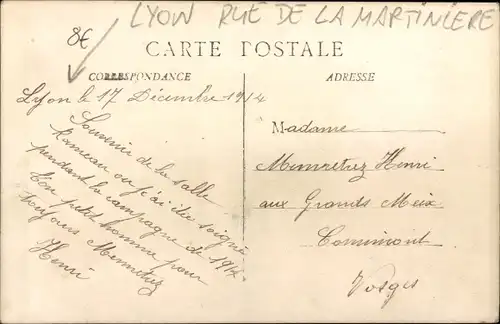 LYON RUE DE LA MARTINIERE
8€
CARTE POSTALE
CORRESPONDANCE
ADRESSE
Lyon le 17 Décembre 1914
Souvenir de la salle
Rameau ou j'ai été soigné
pendant la campagne de 1914
Ton petit homme pour
toujours Menretrez
Henri
Madame
Menretrez Henri
aux Grands Meix
Cornimont
Vosges